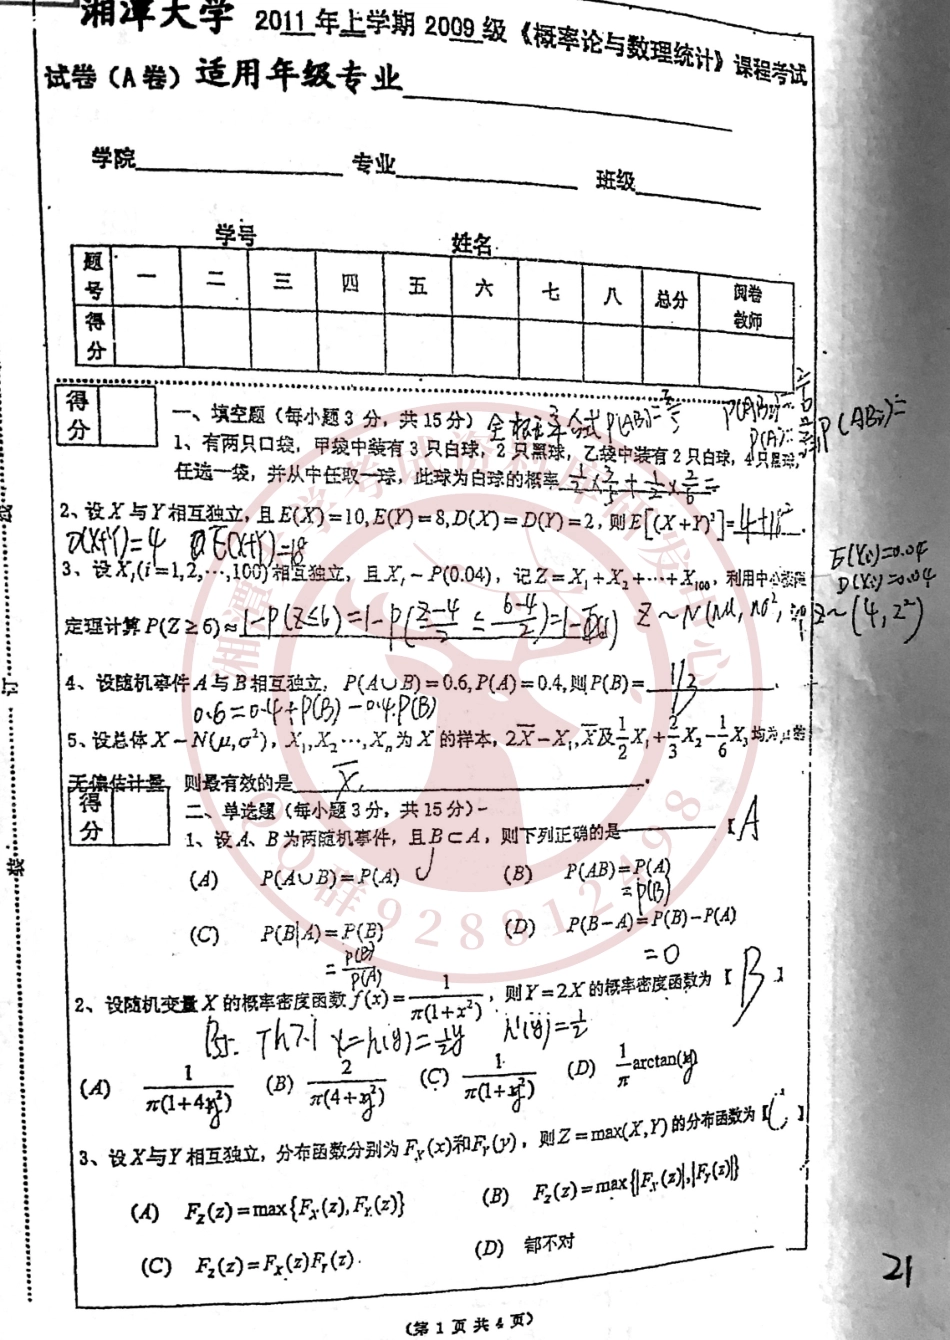 湘潭大学 2011 年上学期 2009 级《概率论与数理统计》课程考试
试卷（A 卷）适用年级专业
学院 专业 班级
学号 姓名
题号 一 二 三 四 五 六 七 八 总分 阅卷教师
得分
得分
一、填空题（每小题 3 分，共 15 分）
1、有两只口袋，甲袋中装有 3 只白球，2 只黑球，乙袋中装有 2 只白球，4 只黑球，
任选一袋，并从中任取一球，此球为白球的概率 1/2×3/5+1/2×2/6=
2、设 X 与 Y 相互独立，且 E(X)=10, E(Y)=8, D(X)=D(Y)=2，则 E[(X+Y)²]=4+18².
D(X+Y)=4 E(X+Y)=18
3、设 Xᵢ(i=1,2,⋯,100) 相互独立，且 Xᵢ~P(0.04)，记 Z=X₁+X₂+⋯+X₁₀₀，利用中心极限
E(Xi)=0.04
D(Xi)=0.04
定理计算 P(Z≥6)≈1-P(Z≤6)=1-P(Z-4/2≤6-4/2)=1-Φ(1) Z~N(nμ, nσ², Z~(4,2²)
4、设随机事件 A 与 B 相互独立，P(A∪B)=0.6, P(A)=0.4, 则 P(B)= 1/3
0.6=0.4+P(B)-0.4P(B)
5、设总体 X~N(μ,σ²)，X₁,X₂⋯,Xₙ 为 X 的样本，2X̄-X₁, X̄ 及 1/2X₁+2/3X₂-1/6X₃ 均为 μ 的
无偏估计量，则最有效的是 X̄ .
得分
二、单选题（每小题 3 分，共 15 分）
1、设 A、B 为两随机事件，且 B⊂A，则下列正确的是 【A
(A) P(A∪B)=P(A) (B) P(AB)=P(A)
=P(B)
(C) P(B|A)=P(B) (D) P(B-A)=P(B)-P(A)
=P(B)/P(A) =0
2、设随机变量 X 的概率密度函数 f(x)=1/π(1+x²)，则 Y=2X 的概率密度函数为【B】
Th7.1 x=h(y)=1/2y h'(y)=1/2
(A) 1/π(1+4y²) (B) 2/π(4+y²) (C) 1/π(1+y²) (D) 1/π arctan(y)
3、设 X 与 Y 相互独立，分布函数分别为 F_X(x)和F_Y(y)，则 Z=max(X,Y) 的分布函数为【C】
(A) F_Z(z)=max{F_X(z),F_Y(z)} (B) F_Z(z)=max{|F_X(z)|,|F_Y(z)|}
(C) F_Z(z)=F_X(z)F_Y(z). (D) 都不对
21
（第 1 页 共 4 页）